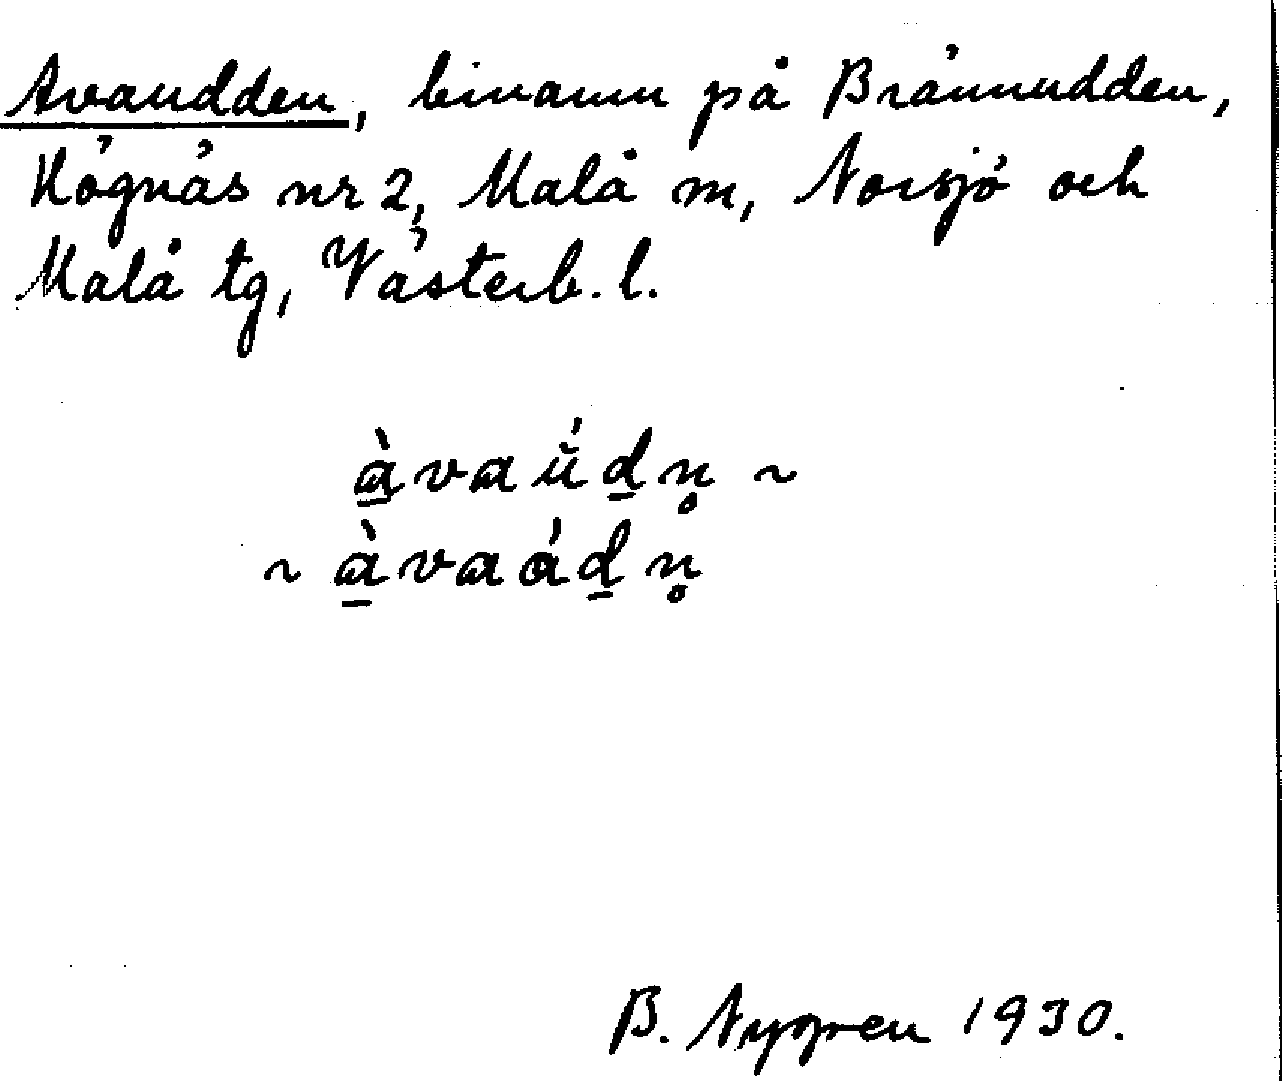 Avaudden, binamn på Brännudden,
Högnäs nr 2, Malå m, Norsjö och
Malå tg, Västerb. l.
à̱vaŭ́ḏn̥ ~
~ à̱vaáḏn̥
B. Nygren 1930.